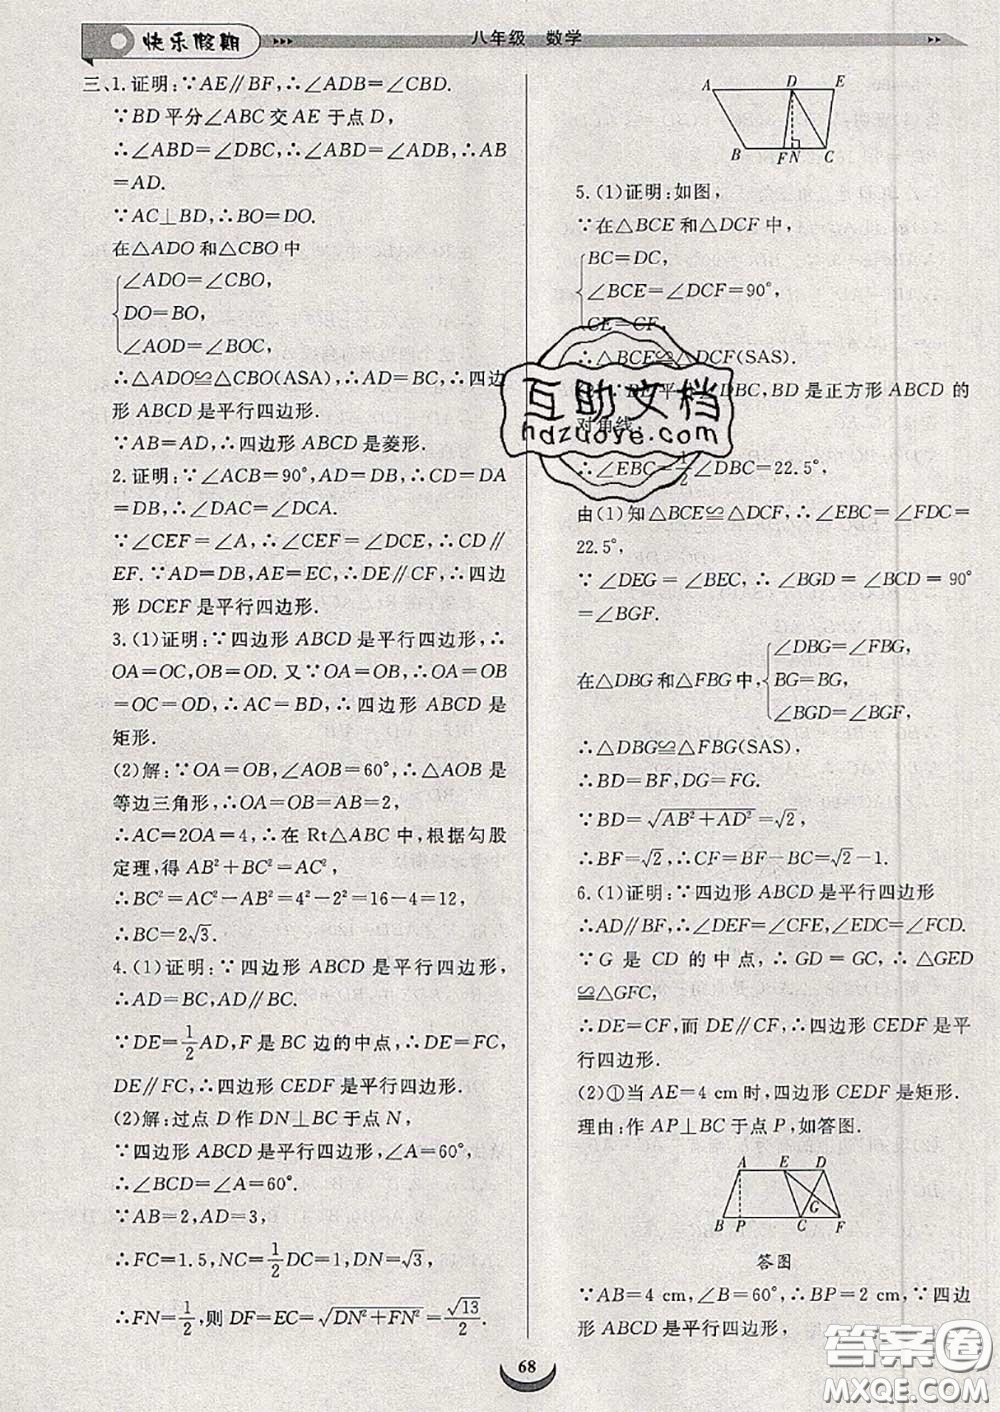 快乐假期
八年级 数学
三、1.证明:∵AE∥BF,∴∠ADB=∠CBD.
∵BD平分∠ABC交AE于点D,
∴∠ABD=∠DBC,∴∠ABD=∠ADB,∴AB
=AD.
∵AC⊥BD,∴BO=DO.
在△ADO和△CBO中
∠ADO=∠CBO,
DO=BO,
∠AOD=∠BOC,
∴△ADO≌△CBO(ASA),∴AD=BC,∴四边
形ABCD是平行四边形.
∵AB=AD,∴四边形ABCD是菱形.
2.证明:∵∠ACB=90°,AD=DB,∴CD=DA
=DB,∴∠DAC=∠DCA.
∵∠CEF=∠A,∴∠CEF=∠DCE,∴CD∥
EF.∵AD=DB,AE=EC,∴DE∥CF,∴四边
形DCEF是平行四边形.
3.(1)证明:∵四边形ABCD是平行四边形,∴
OA=OC,OB=OD.又∵OA=OB,∴OA=OB
=OC=OD,∴AC=BD,∴四边形ABCD是
矩形.
(2)解:∵OA=OB,∠AOB=60°,∴△AOB是
等边三角形,∴OA=OB=AB=2,
∴AC=2OA=4,∴在Rt△ABC中,根据勾股
定理,得AB²+BC²=AC²,
∴BC²=AC²-AB²=4²-2²=16-4=12,
∴BC=2√3.
4.(1)证明:∵四边形ABCD是平行四边形,
∴AD=BC,AD∥BC.
∵DE=1/2AD,F是BC边的中点,∴DE=FC,
DE∥FC,∴四边形CEDF是平行四边形.
(2)解:过点D作DN⊥BC于点N,
∵四边形ABCD是平行四边形,∠A=60°,
∴∠BCD=∠A=60°.
∵AB=2,AD=3,
∴FC=1.5,NC=1/2DC=1,DN=√3,
∴FN=1/2,则DF=EC=√(DN²+FN²)=√13/2.
A D E
B F N C
5.(1)证明:如图,
∵在△BCE和△DCF中,
BC=DC,
∠BCE=∠DCF=90°,
CE=CF,
∴△BCE≌△DCF(SAS).
平 DBC,BD是正方形ABCD的
对角线,
∴∠EBC=1/2∠DBC=22.5°,
由(1)知△BCE≌△DCF,∴∠EBC=∠FDC=
22.5°,
∵∠DEG=∠BEC,∴∠BGD=∠BCD=90°
=∠BGF.
在△DBG和△FBG中,
∠DBG=∠FBG,
BG=BG,
∠BGD=∠BGF,
∴△DBG≌△FBG(SAS),
∴BD=BF,DG=FG.
∵BD=√(AB²+AD²)=√2,
∴BF=√2,∴CF=BF-BC=√2-1.
6.(1)证明:∵四边形ABCD是平行四边形
∴AD∥BF,∴∠DEF=∠CFE,∠EDC=∠FCD.
∵G是CD的中点,∴GD=GC,∴△GED
≌△GFC,
∴DE=CF,而DE∥CF,∴四边形CEDF是平
行四边形.
(2)①当AE=4 cm时,四边形CEDF是矩形.
理由:作AP⊥BC于点P,如答图.
A E D
G
B P C F
答图
∵AB=4 cm,∠B=60°,∴BP=2 cm,∵四边
形ABCD是平行四边形,
68
互助文档
hdzuoye.com
答案圈
MXQE.COM